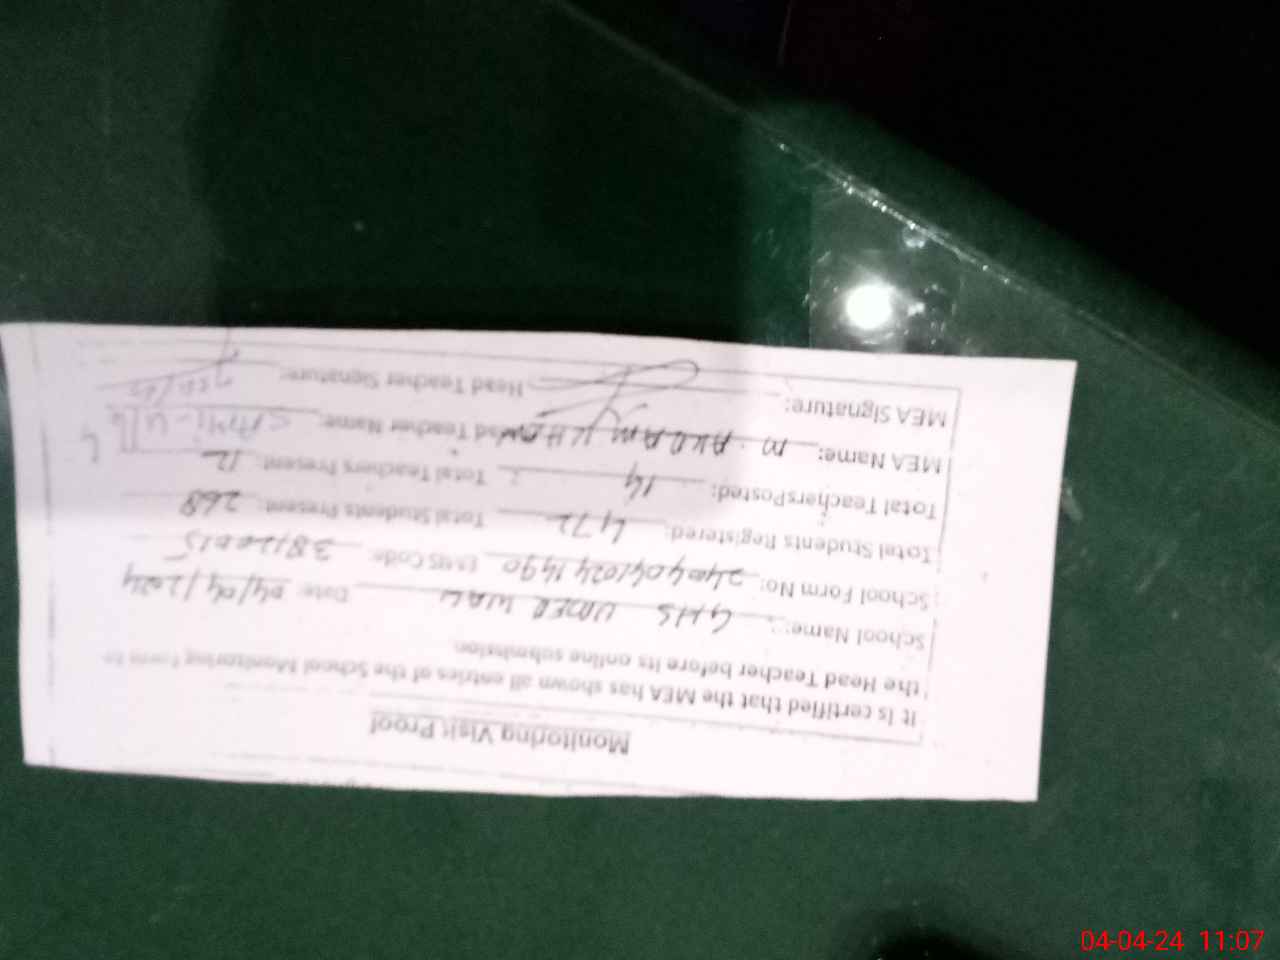 Monitoring Visit Proof
It is certified that the MEA has shown all entries of the School Monitoring Form to
the Head Teacher before its online submission.
School Name: GHS UMER WALI Date: 04/04/2024
School Form No: EMIS Code:
Total Students Registered: 472 Total Students Present: 268
Total TeachersPosted: 14 Total Teachers Present: 12
MEA Name: M. AKRAM KHAN Head Teacher Name: SAMI-U
MEA Signature: Head Teacher Signature:
04-04-24 11:07